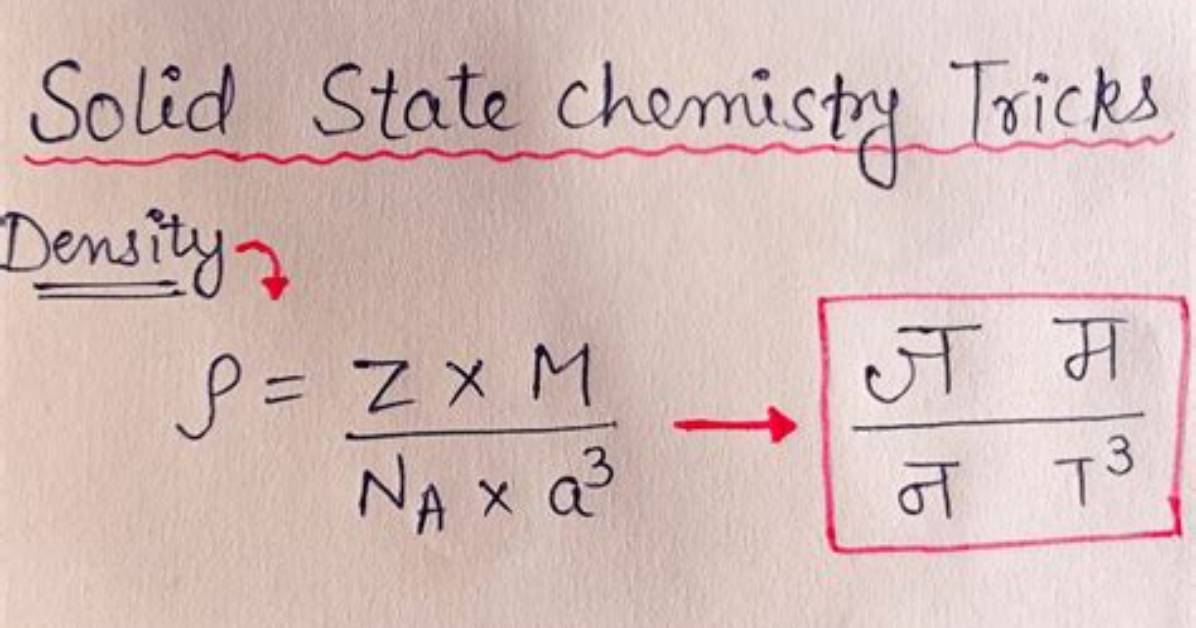 Solid State Chemistry Tricks
Density
ρ = Z × M / N_A × a³ → ज म / न ा³